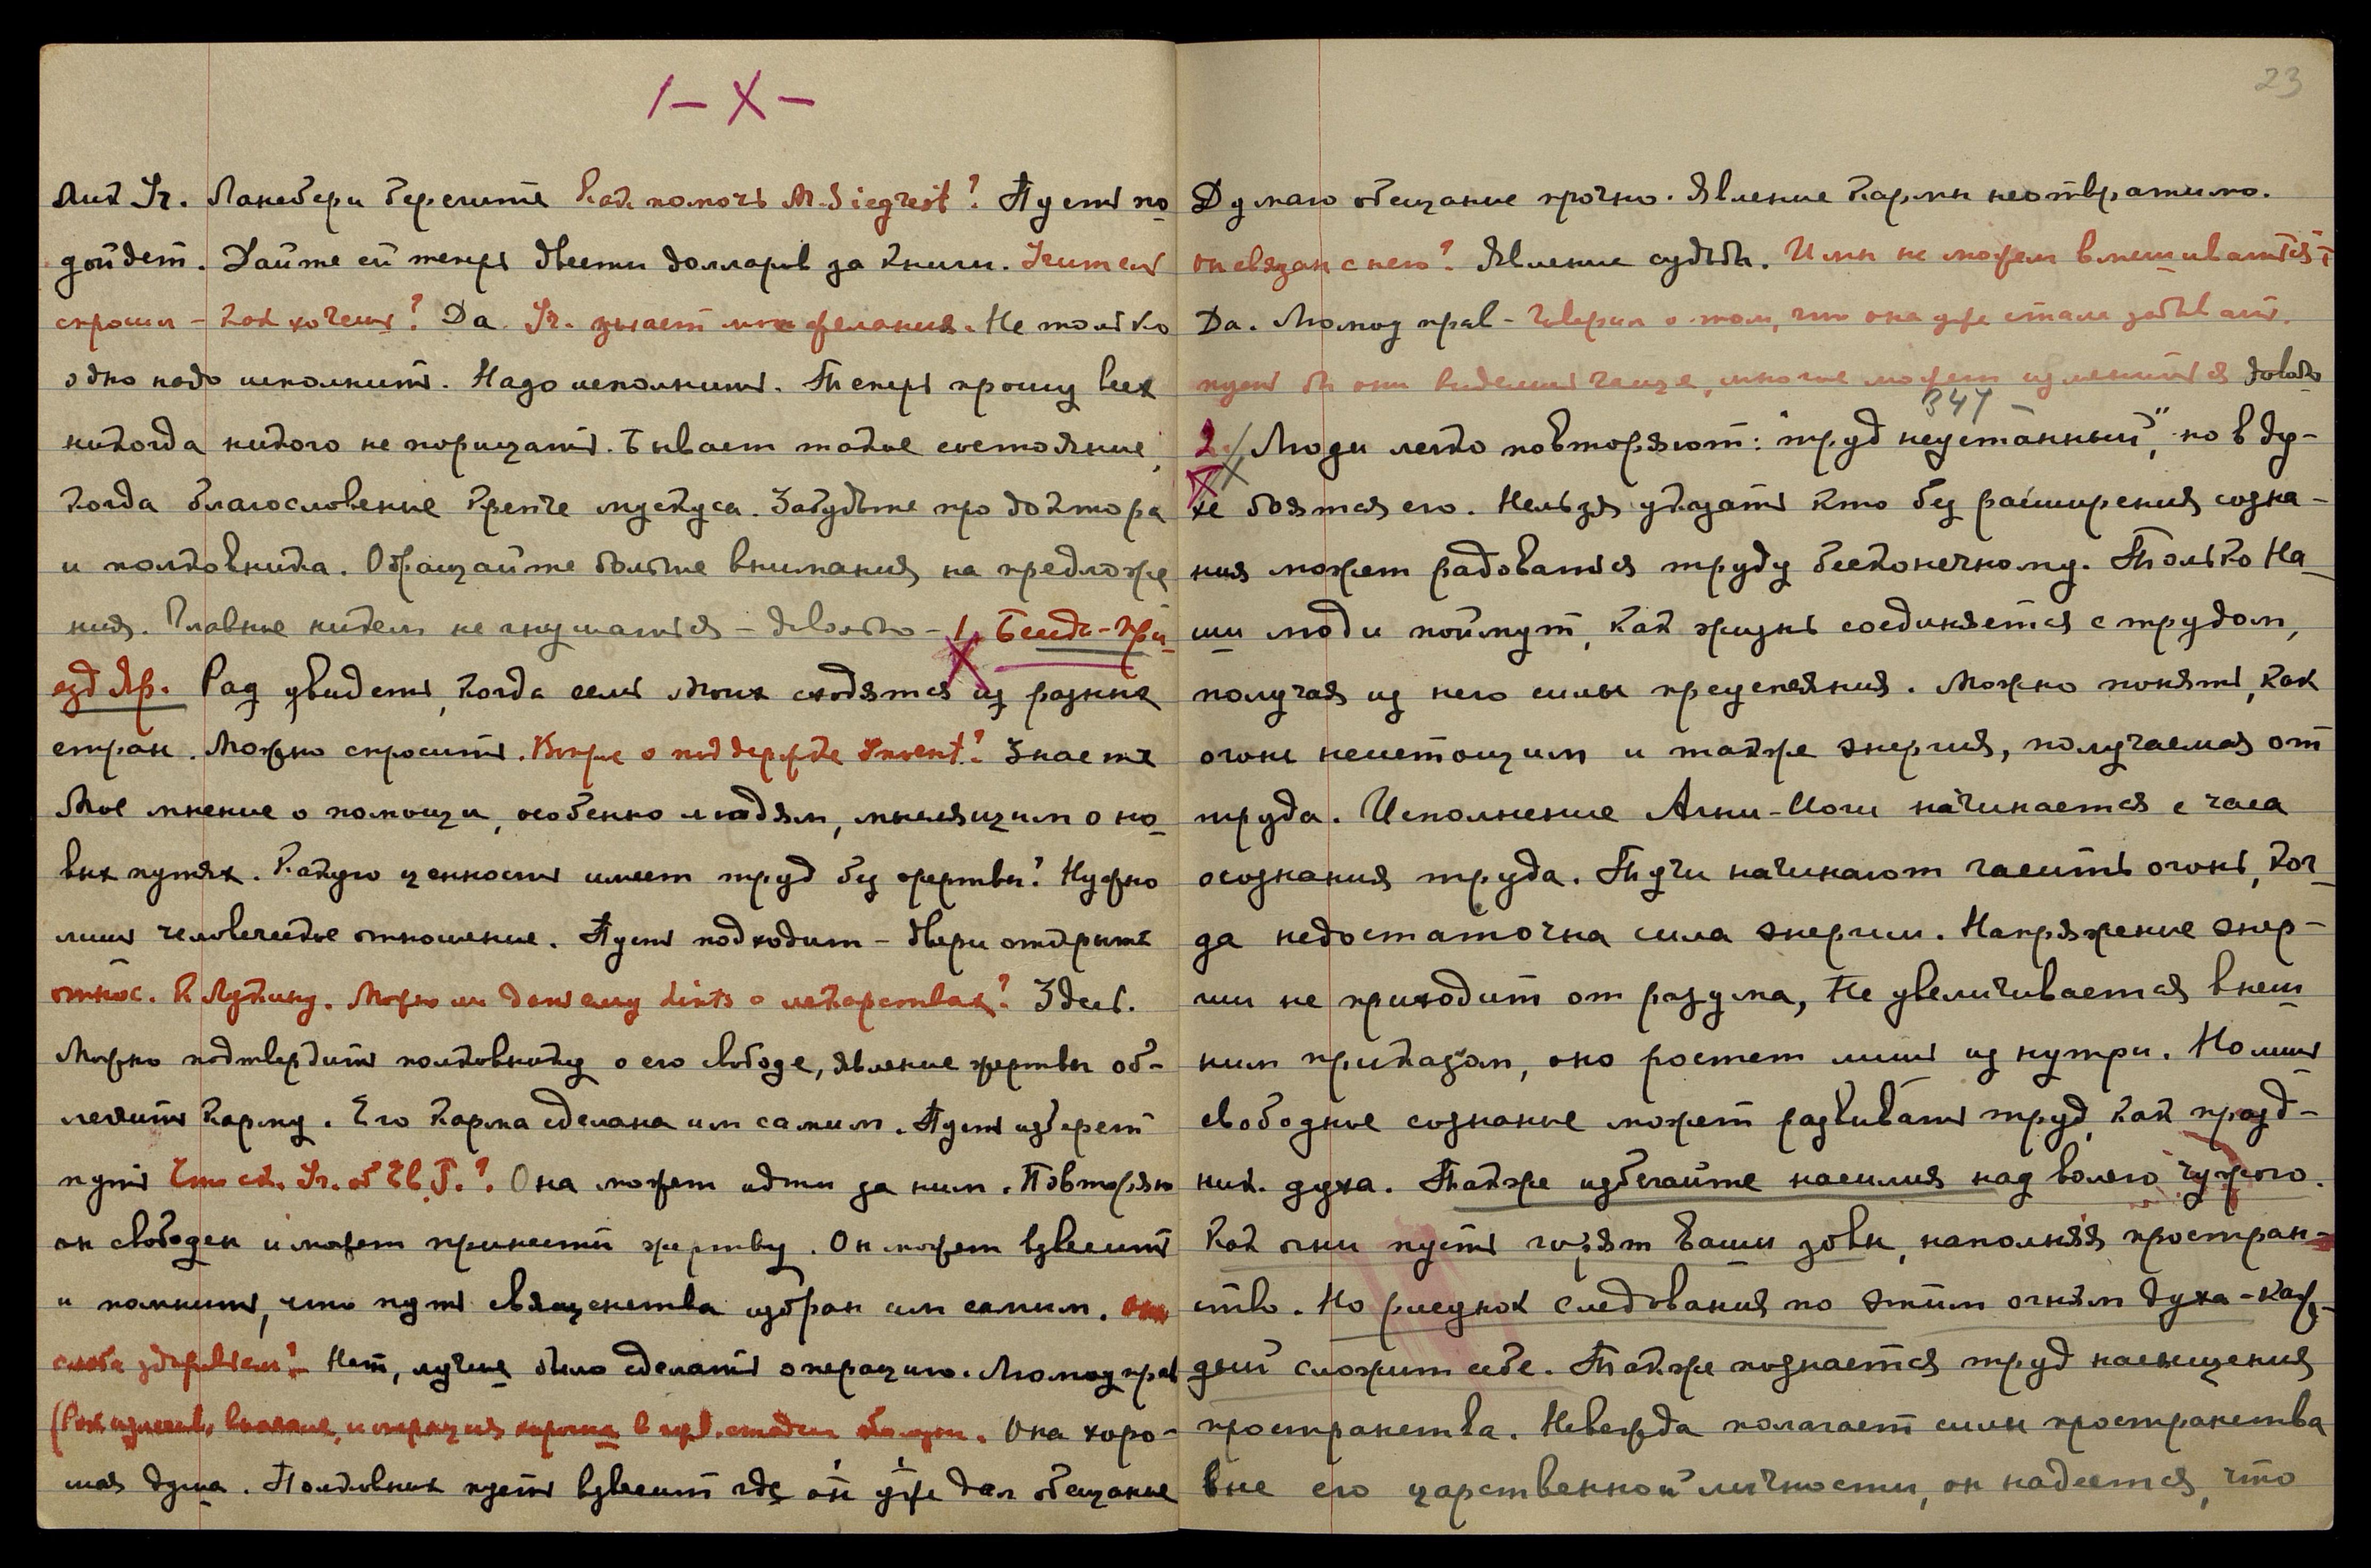 1 – X –
Лик Уч. Ланбери берегите Как помочь M. Siegrest? Пусть по
дойдет. Дайте ей теперь двести долларов за книги. Учитель
спроси – как хочешь? Да. Уч. знает мои желания. Не только
одно надо исполнить. Надо исполнить. Теперь прошу всех
никогда никого не порицать. Бывает такое состояние,
когда благословение крепче мускуса. Забудьте про доктора
и полковника. Обращайте больше внимания на предложе
ния. Главное никем не гнушаться – довольно – 1. Беседа – при
езд Яр. Рад увидеть, когда семь Моих сходятся из разных
стран. Можно спросить. Вопрос о поддержке Invent.? Знаете
Мое мнение о помощи, особенно людям, мыслящим о но
вых путях. Какую ценность имеет труд без жертвы? Нужно
лишь человеческое отношение. Пусть подходит – двери открыты
относ. К Лукину. Можно ли дать ему hints о лекарствах? Здесь.
Можно подтвердить полковнику о его свободе, явление жертвы об-
легчить карму. Его карма сделана им самим. Пусть изберет
путь Что ск. Уч. об Ев. Г.? Она может идти за ним. Повторяю
он свободен и может принести жертву. Он может взвесить
и помнить, что путь священства избран им самим. Она
слаба здоровьем? Нет, лучше было сделать операцию. Люмоу прав
операция хороша в стадии Она хоро-
шая душа. Полковник пусть взвесит где он уже дал обещание
23
Думаю обещание прочно. Явление кармы неотвратимо.
он связан с нею? Явление судьбы. И мы не можем вмешиваться?
Да. Люмоу прав – Говорил о том, что она уже стала забывать.
пусть бы они виделись чаще, многое может измениться довольно
347 –
2. Люди легко повторяют: "труд неустанный", но в ду-
хе боятся его. Нельзя указать кто без расширения созна-
ния может радоваться труду бесконечному. Только На
ши люди поймут, как жизнь соединяется с трудом,
получая из него силы преуспеяния. Можно понять, как
огонь неистощим и также энергия, получаемая от
труда. Исполнение Агни-Йоги начинается с часа
осознания труда. Тучи начинают гасить огонь, ког
да недостаточна сила энергии. Напряжение энер-
гии не приходит от разума, Не увеличивается внеш
ним приказом, оно ростет лишь из нутри. Но лишь
свободное сознание может развивать труд, как празд-
ник духа. Также избегайте насилия над волею чужою.
Как огни пусть горят Ваши зовы, наполняя простран-
ство. Но рисунок следования по этим огням духа – каж
дый сложит себе. Также познается труд насыщения
пространства. Невежда полагает силы пространства
вне его царственной личности, он надеется, что